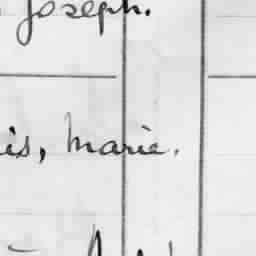 Joseph.
is, Marie.